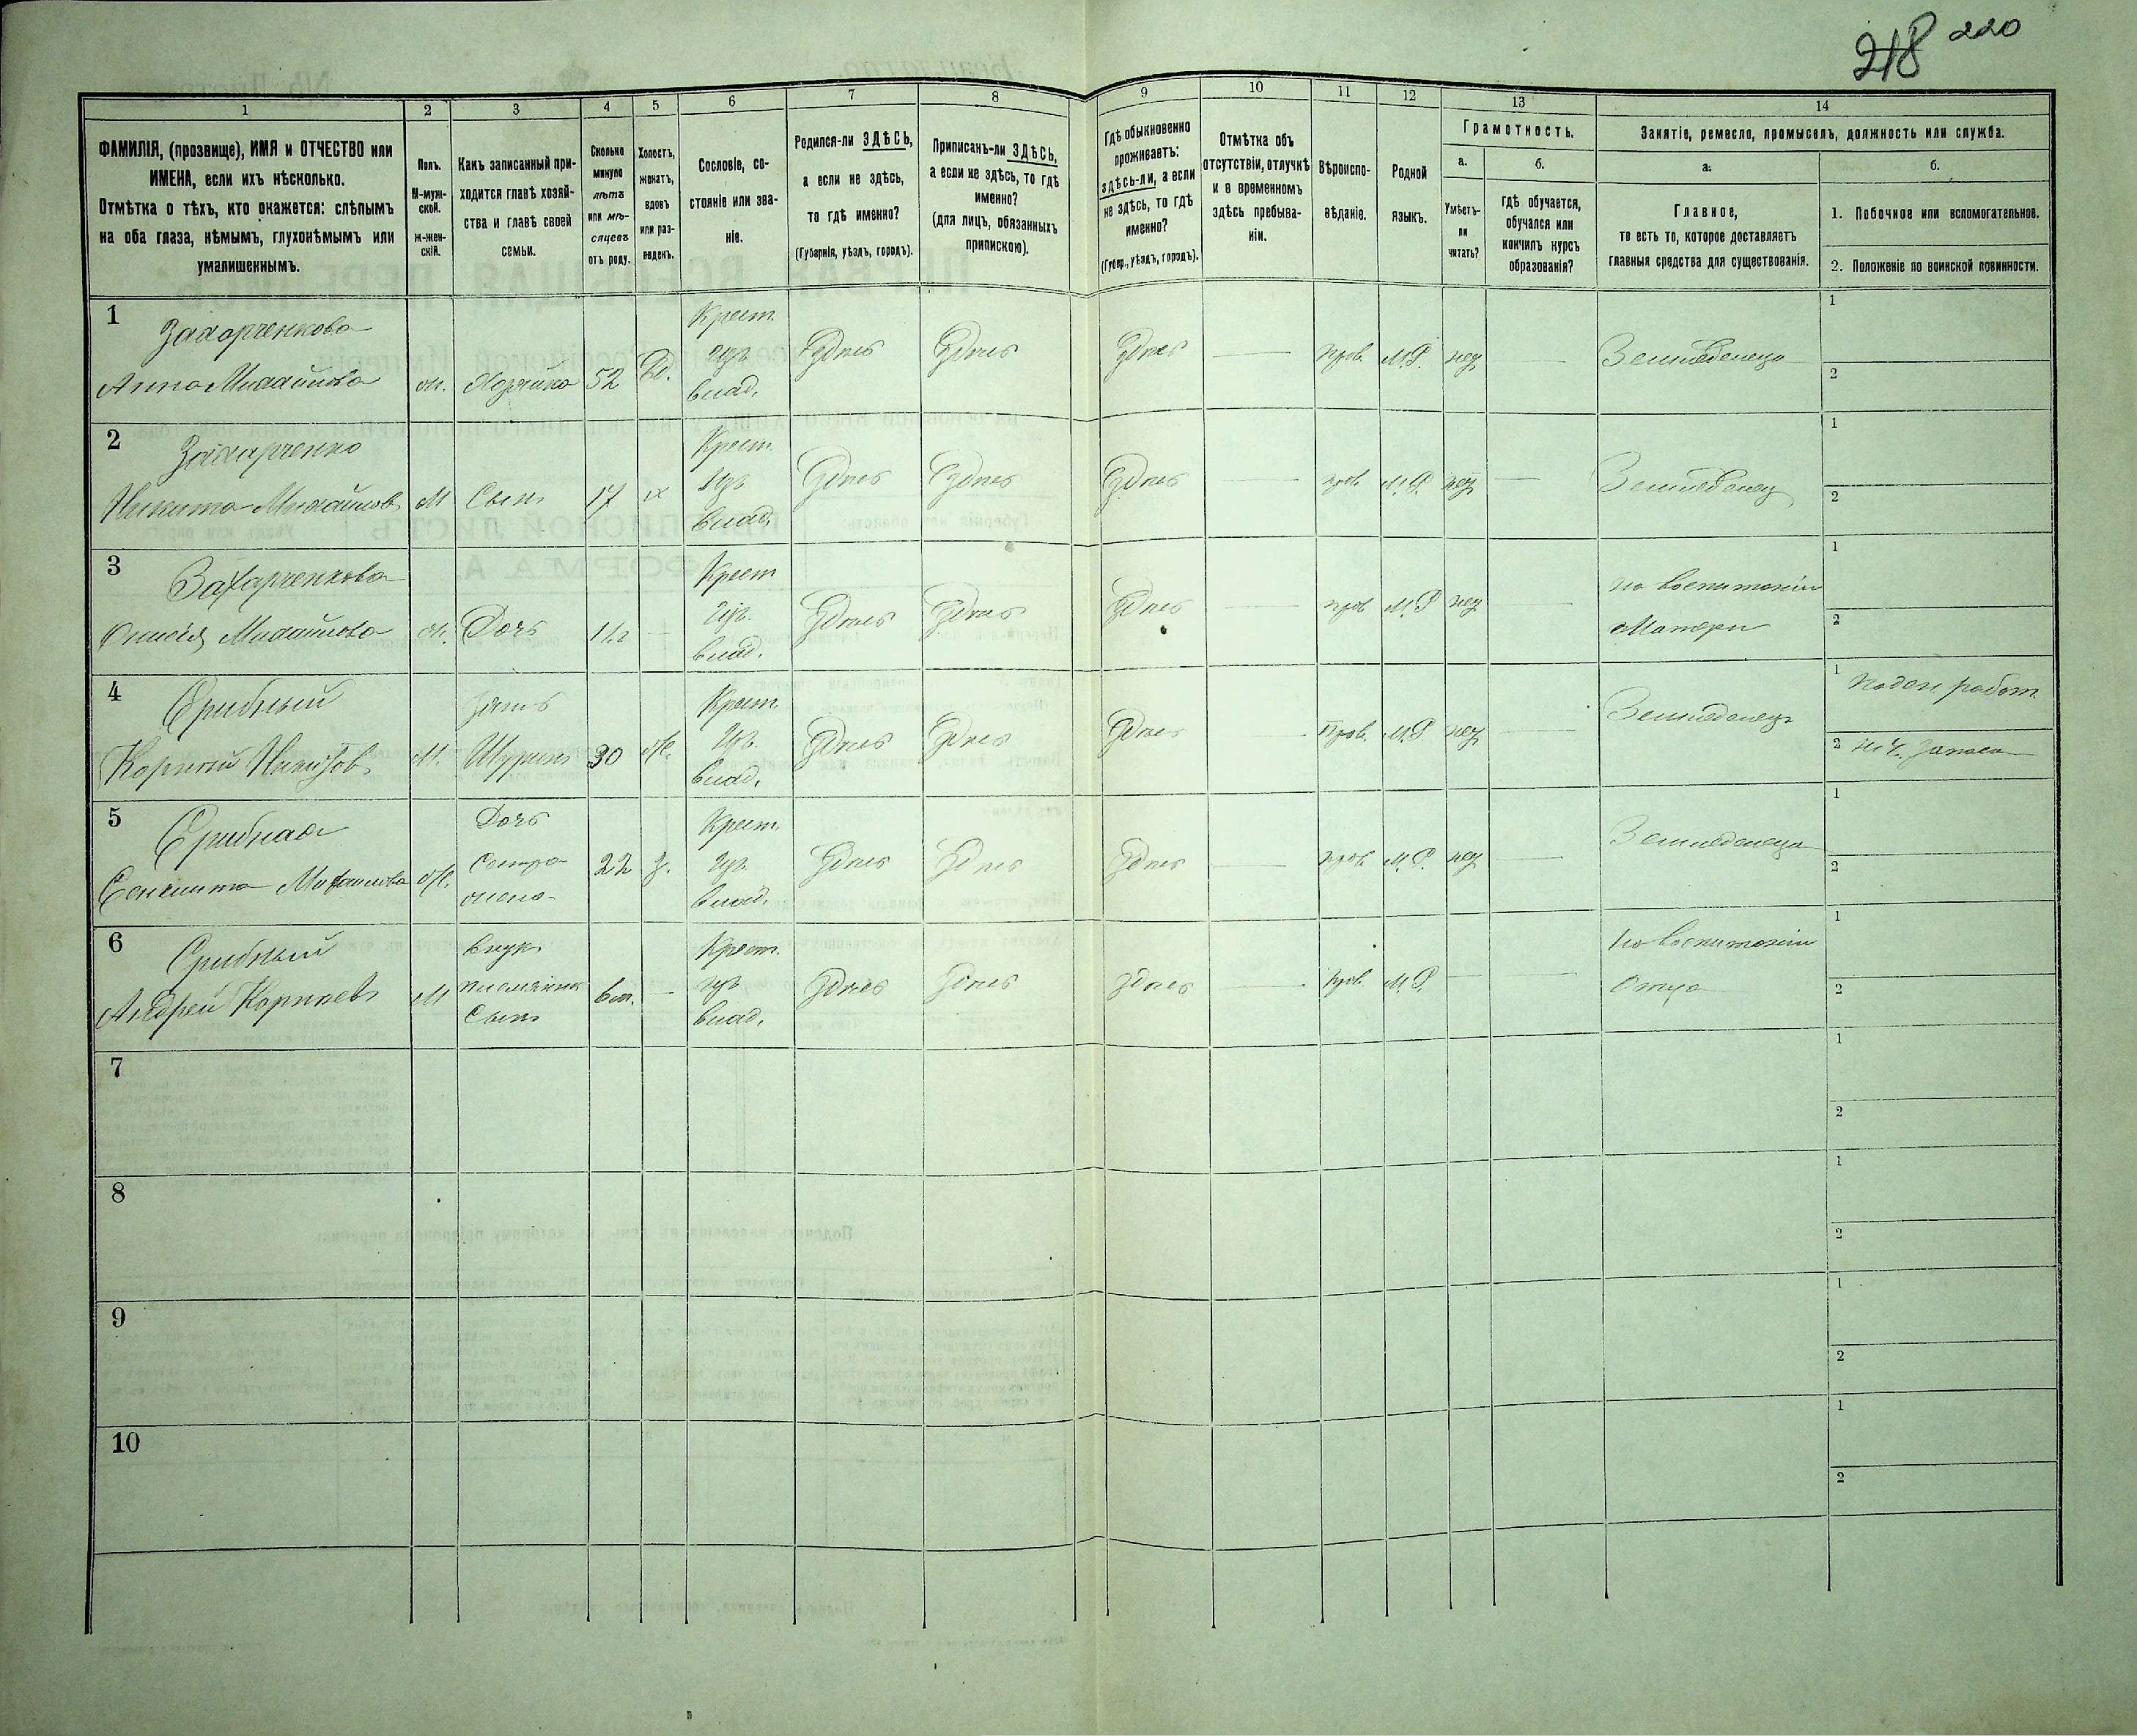 218 220
1 2 3 4 5 6 7 8 9 10 11 12 13 14
ФАМИЛІЯ, (прозвище), ИМЯ и ОТЧЕСТВО или
ИМЕНА, если ихъ нѣсколько.
Отмѣтка о тѣхъ, кто окажется: слѣпымъ
на оба глаза, нѣмымъ, глухонѣмымъ или
умалишеннымъ.
Полъ.
М-муж-
ской.
Ж-жен-
скій.
Какъ записанный при-
ходится главѣ хозяй-
ства и главѣ своей
семьи.
Сколько
минуло
лѣтъ
или мѣ-
сяцевъ
отъ роду.
Холостъ,
женатъ,
вдовъ
или раз-
веденъ.
Сословіе, со-
стояніе или зва-
ніе.
Родился-ли ЗДѢСЬ,
а если не здѣсь,
то гдѣ именно?
(Губернія, уѣздъ, городъ).
Приписанъ-ли ЗДѢСЬ,
а если не здѣсь, то гдѣ
именно?
(для лицъ, обязанныхъ
припискою).
Гдѣ обыкновенно
проживаетъ:
здѣсь-ли, а если
не здѣсь, то гдѣ
именно?
(Губер., уѣздъ, городъ).
Отмѣтка объ
отсутствіи, отлучкѣ
и в временномъ
здѣсь пребыва-
ніи.
Вѣроиспо-
вѣданіе.
Родной
языкъ.
Грамотность.
а. б.
Умѣетъ-
ли
читать?
гдѣ обучается,
обучался или
кончилъ курсъ
образованія?
Занятіе, ремесло, промыселъ, должность или служба.
а. б.
Главное,
то есть то, которое доставляетъ
главныя средства для существованія.
1. Побочное или вспомогательное.
2. Положеніе по воинской повинности.
1 Захарченкова Крест. 1
Анна Михайлова ж. Хозяйка 52 В. изъ Здѣсь Здѣсь Здѣсь — Прав. М.Р. нѣтъ — Земледѣлица
влад. 2
2 Захарченко Крест. 1
Никита Михайловъ М Сынъ 17 х изъ Здѣсь Здѣсь Здѣсь — прав. М.Р. нѣтъ — Земледѣлец
влад. 2
3 Захарченкова Крест 1
Михайлова ж. Дочь 11 — изъ Здѣсь Здѣсь Здѣсь — прав М.Р нѣтъ — на воспитаніи
влад. Матери 2
4 Срибный Зять Крест. 1 поден. работ.
Корнѣй М. Шуринъ 30 ж. изъ Здѣсь Здѣсь Здѣсь — Прав. М.Р нѣтъ — Земледѣлецъ
влад. 2 запаса
5 Срибная Дочь Крест. 1
Михаилова ж. Сестра 22 з. изъ Здѣсь Здѣсь Здѣсь — прав М.Р. нѣтъ — Земледѣлица
влад. 2
6 Срибный внукъ Крест. 1
Андрей Корнѣевъ М 6 м. — изъ Здѣсь Здѣсь здѣсь — прав. М.Р. — — на воспитаніи
Сынъ влад. Отца 2
7 1
2
8 1
2
9 1
2
10 1
2